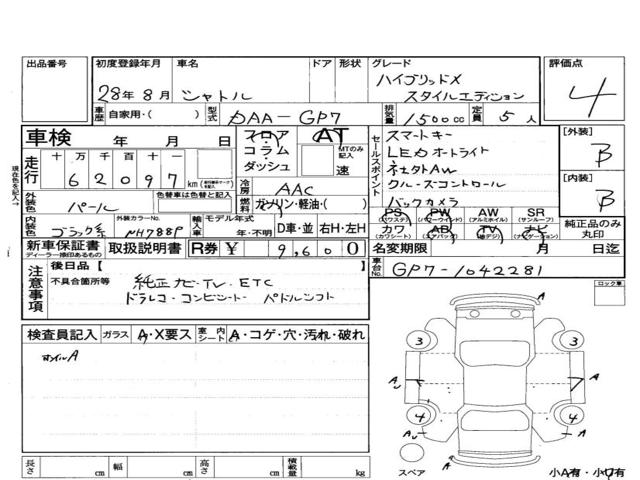 出品番号 初度登録年月 車名 ドア 形状 グレード 評価点
28年8月 シャトル ハイブリッドX スタイルエディション 4
車歴 自家用・( ) 型式 DAA-GP7 排気量 1500cc 定員 5人
車検 年 月 日 フロア AT セールスポイント スマートキー [外装]
コラム MTのみ記入 LEDオートライト B
走行 十 万 千 百 十 ダッシュ 速
6 2 0 9 7 km 冷房 AAC クルーズコントロール [内装]
外装色 パール 色替車は色替と記入 燃料 ガソリン・軽油・( ) バックカメラ B
内装色 外装カラーNo. NH788P 輸入車 モデル年式 年・不明 D車・並 右H・左H
PS (パワステ) PW (パワーウインド) AW (アルミホイル) SR (サンルーフ) 純正品のみ丸印
カワ (カワシート) AB (エアバック) TV (地デジ) ナビ (ナビゲーション)
新車保証書 ディーラー捺印あるもの 取扱説明書 R券 ¥ 9,600 名変期限 月 日迄
注意事項 後日品【 】 車台No. GP7-1042281
不具合箇所等 純正ナビ・TV・ETC ロック車
ドラレコ・コンビシート パドルシフト
検査員記入 ガラス A・X要ス 室内シート A・コゲ・穴・汚れ・破れ
ホイルA
A
3 3
A A
4 4
A A
スペア
長さ cm 幅 cm 高さ cm 積載量 kg 小A有・小ワ有
現在色を記入→